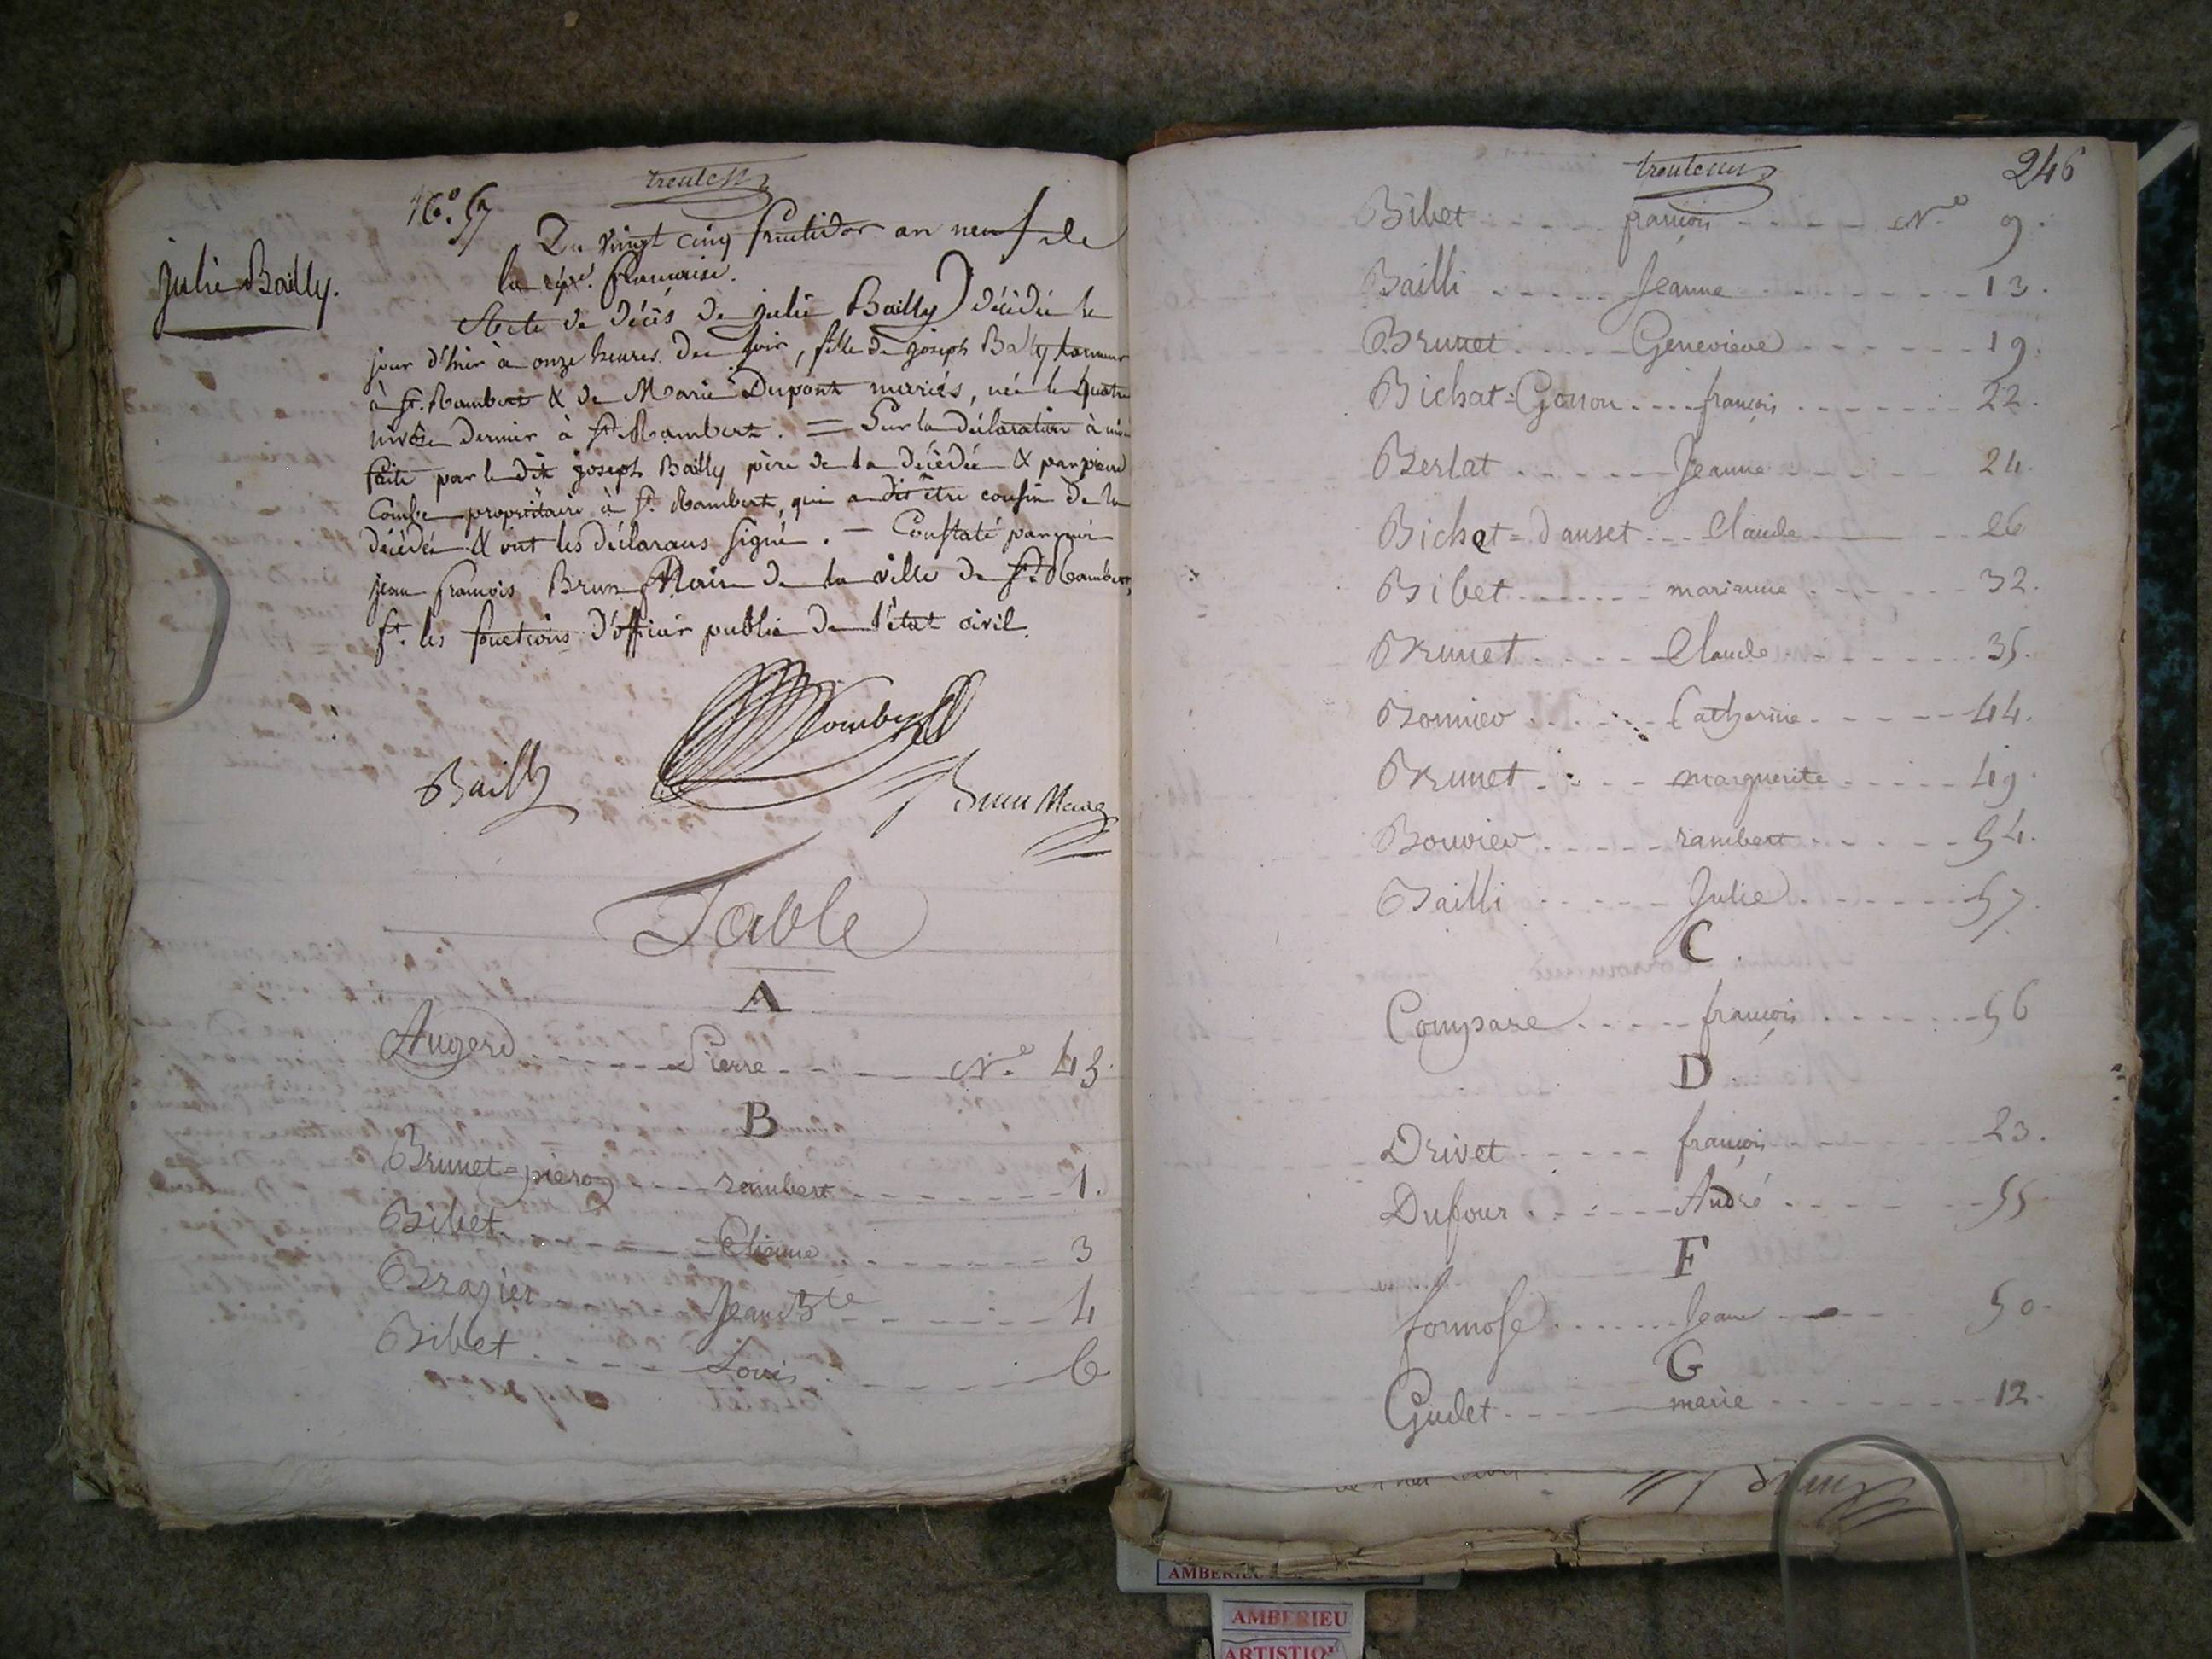 trente six
N.º 57
Julie Bailly.
Du vingt cinq fructidor an neuf de
la rép.e française.
Acte de décès de julie Bailly décédée le
jour d'hier à onze heures du soir, fille de joseph Bailly tanneur
à St. Rambert & de Marie Dupont mariés, née le quatre
nivôse dernier à St. Rambert. = Sur la déclaration à moi
faite par le dit joseph Bailly père de la décédée & par pierre
Combe propriétaire à St. Rambert, qui a dit être cousin de la
décédée & ont les déclarans signé. = Constaté par moi
jean françois Brun Maire de la ville de St. Rambert,
ft. les fonctions d'officier public de l'état civil.
Combe
Bailly
Brun Maire
Table
A
Augerd - - - - - Pierre - - - - N.º 43.
B
Brunet=pieroz - - - rambert - - - - - - - 1.
Bibet - - - - - - Etienne - - - - - - 3
Brazier - - - - Jean Bte - - - - - - 4
Bibet - - - - - Louis - - - - - - 6
246
Bibet - - - - - françois - - - - - N.º 9.
Bailli - - - - - Jeanne - - - - - - - - 13.
Brunet - - - - - Genevieve - - - - - - - 19.
Bichat=Gonon - - - - françois - - - - - - - 22.
Berlat - - - - - - Jeanne - - - - - - 24.
Bichat=Danset - - - Claude - - - 26
Bibet - - - - - - - marianne - - - - - - 32.
Brunet - - - - - Claude - - - - - - - - 35.
Bonnier - - - - - - Catherine - - - - - - 44.
Brunet - - - - marguerite - - - - - 49.
Bouvier - - - - - rambert - - - - - - 54.
Bailli - - - - - Julie - - - - - - - 57.
C.
Compare - - - - - françois - - - - - - 56
D.
Drivet - - - - - - françois - - - - - - 23.
Dufour - - - - - - André - - - - - - 55
F
formose - - - - - - - Jean - - - 50.
G
Gudet - - - - - marie - - - - - - - - - 12.
AMBERIEU
AMBERIEU
ARTISTIQU